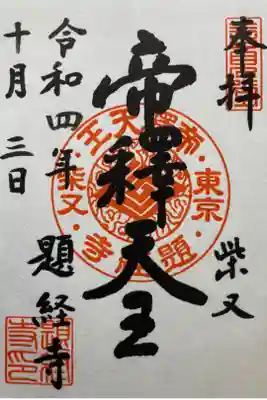 奉拝
柴又
帝釋天王
令和四年
十月三日
題経寺
東京・題経寺・柴又・帝釋天王